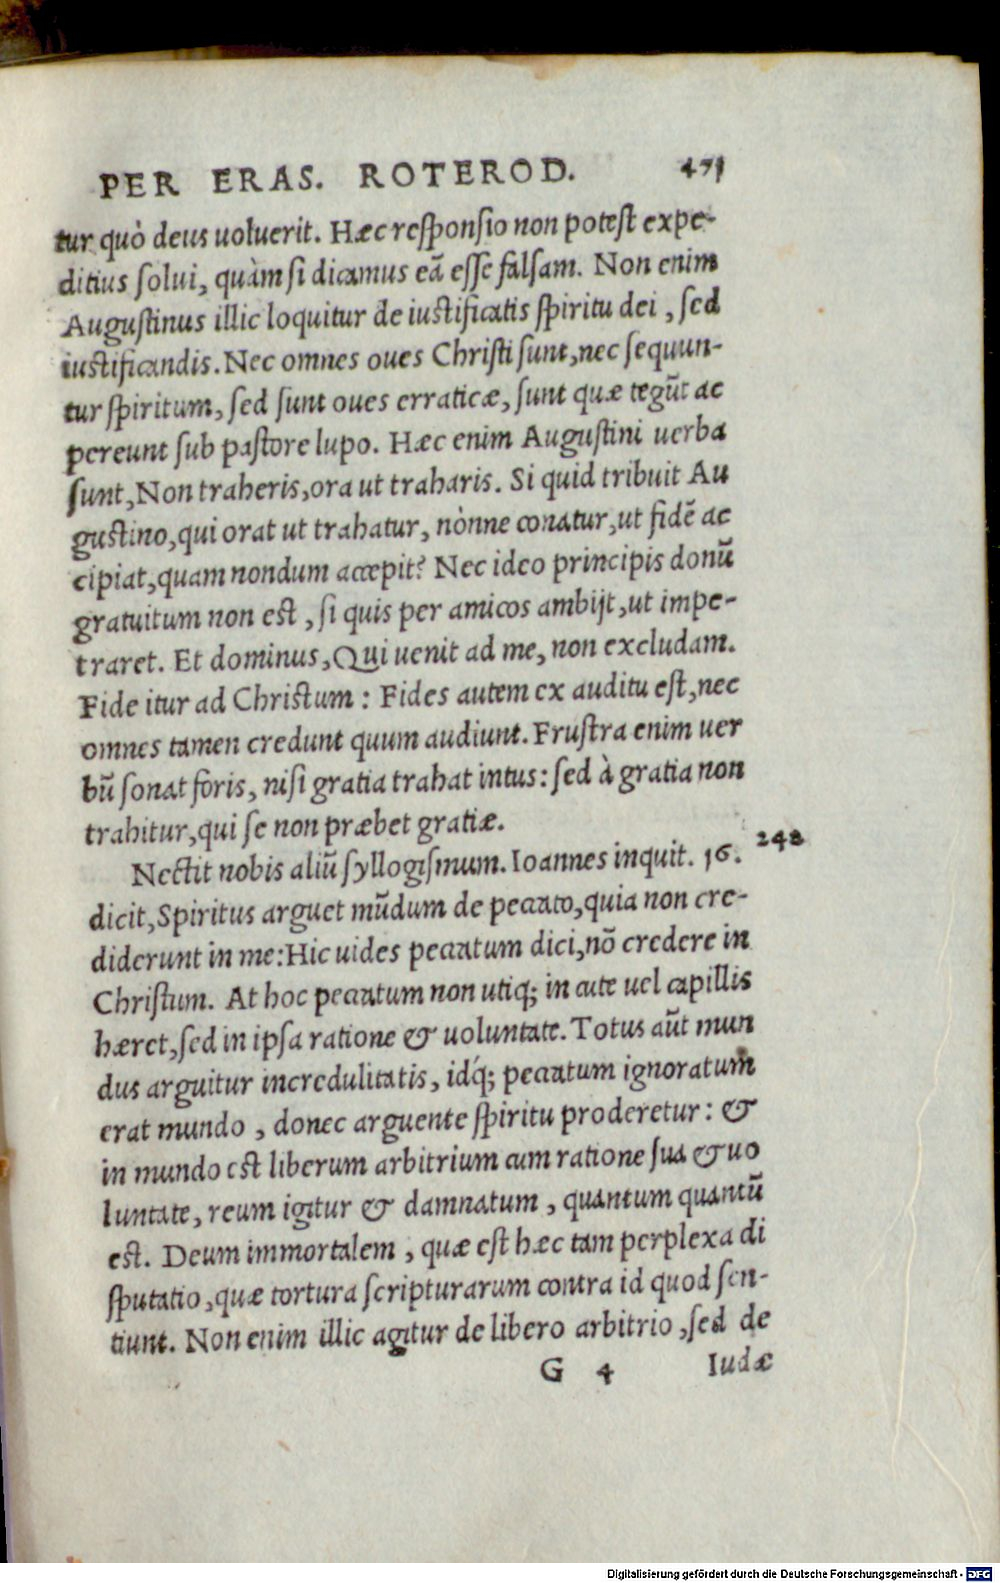 PER ERAS. ROTEROD. 471
tur quò deus uoluerit. Hæc responsio non potest expe-
ditius solui, quàm si dicamus eā esse falsam. Non enim
Augustinus illic loquitur de iustificatis spiritu dei, sed
iustificandis. Nec omnes oues Christi sunt, nec sequun-
tur spiritum, sed sunt oues erraticæ, sunt quæ tegūt ac
pereunt sub pastore lupo. Hæc enim Augustini uerba
sunt, Non traheris, ora ut traharis. Si quid tribuit Au
gustino, qui orat ut trahatur, nònne conatur, ut fidē ac
cipiat, quam nondum accepit? Nec ideo principis donū
gratuitum non est, si quis per amicos ambijt, ut impe-
traret. Et dominus, Qui uenit ad me, non excludam.
Fide itur ad Christum: Fides autem ex auditu est, nec
omnes tamen credunt quum audiunt. Frustra enim uer
bū sonat foris, nisi gratia trahat intus: sed à gratia non
trahitur, qui se non præbet gratiæ.
Nectit nobis aliū syllogismum. Ioannes inquit. 16. 248
dicit, Spiritus arguet mūdum de peccato, quia non cre-
diderunt in me: Hic uides peccatum dici, nō credere in
Christum. At hoc peccatum non utiq; in cute uel capillis
hæret, sed in ipsa ratione & uoluntate. Totus aūt mun
dus arguitur incredulitatis, idq́; peccatum ignoratum
erat mundo, donec arguente spiritu proderetur: &
in mundo est liberum arbitrium cum ratione sua & uo
luntate, reum igitur & damnatum, quantum quantū
est. Deum immortalem, quæ est hæc tam perplexa di
sputatio, quæ tortura scripturarum contra id quod sen-
tiunt. Non enim illic agitur de libero arbitrio, sed de
G 4 Iudæ
Digitalisierung gefördert durch die Deutsche Forschungsgemeinschaft - DFG